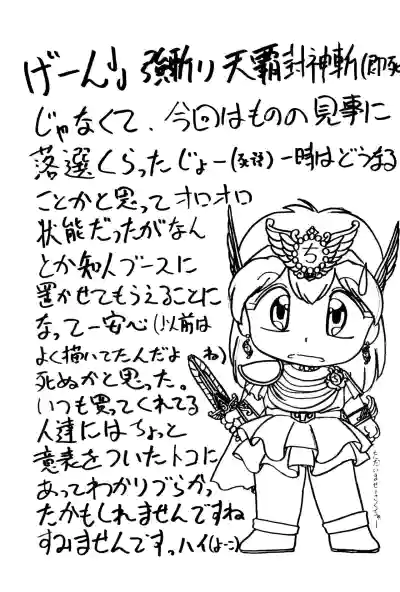 げーん!」 強斬り 天覇封神斬(即死
じゃなくて、今回はものの見事に
落選くらったじょー(死語) 一時はどうなる
ことかと思ってオロオロ
状態だったがなん
とか知人ブースに
置かせてもらえることに
なって一安心(以前は
よく描いてたんだよね)
死ぬかと思った。
いつも買ってくれてる
人達にはちょっと
意表をついたトコに
あってわかりづらかっ
たかもしれませんですね
すみませんですっハイ(よーこ)
ち